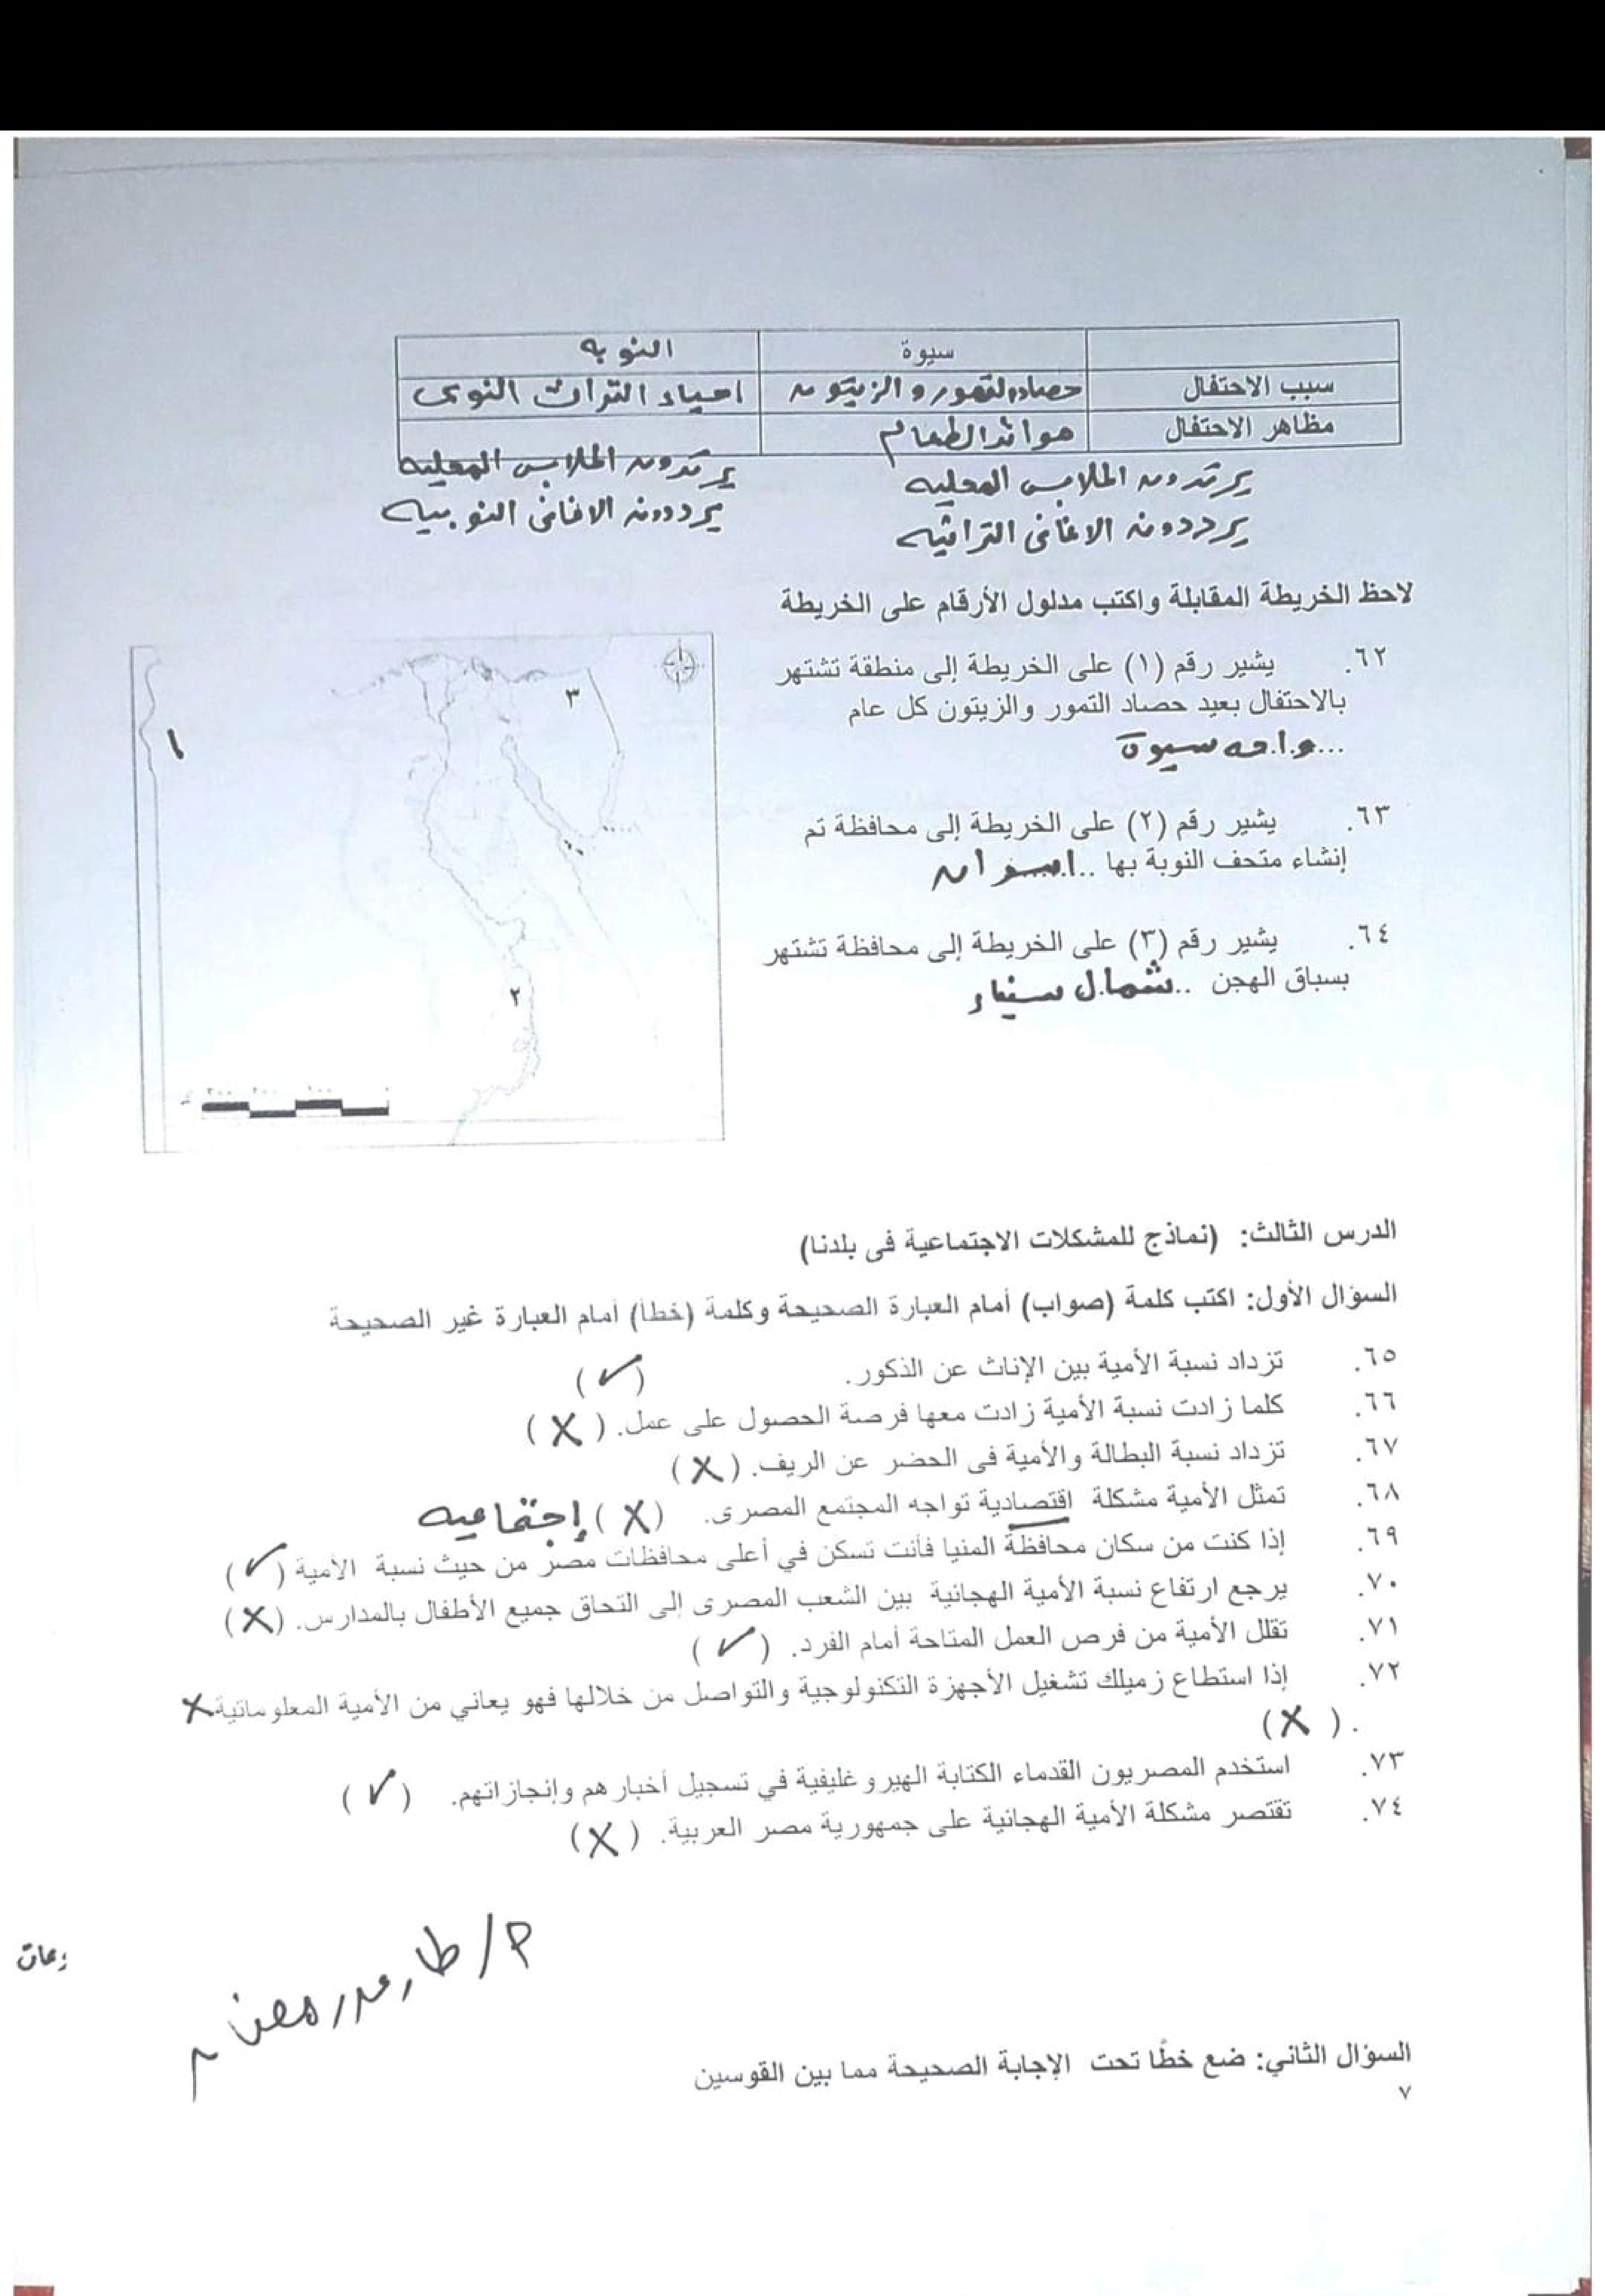 سيوة النوبه
سبب الاحتفال حصاد التمور والزيتون احياء التراث النوبى
مظاهر الاحتفال موائد الطعام
يرتدون الملابس المحليه يرتدون الملابس المحليه
يرددون الاغانى التراثيه يرددون الاغانى النوبيه
لاحظ الخريطة المقابلة واكتب مدلول الأرقام على الخريطة
٦٢. يشير رقم (١) على الخريطة إلى منطقة تشتهر
بالاحتفال بعيد حصاد التمور والزيتون كل عام
...واحه سيوة
٦٣. يشير رقم (٢) على الخريطة إلى محافظة تم
إنشاء متحف النوبة بها ..اسوان
٦٤. يشير رقم (٣) على الخريطة إلى محافظة تشتهر
بسباق الهجن ..شمال سيناء
٣
١
٢
٣٠٠ ٢٠٠ ١٠٠ ٠
الدرس الثالث: (نماذج للمشكلات الاجتماعية فى بلدنا)
السؤال الأول: اكتب كلمة (صواب) أمام العبارة الصحيحة وكلمة (خطأ) أمام العبارة غير الصحيحة
٦٥. تزداد نسبة الأمية بين الإناث عن الذكور. (✓)
٦٦. كلما زادت نسبة الأمية زادت معها فرصة الحصول على عمل. (X)
٦٧. تزداد نسبة البطالة والأمية فى الحضر عن الريف. (X)
٦٨. تمثل الأمية مشكلة اقتصادية تواجه المجتمع المصرى. (X) إجتماعيه
٦٩. إذا كنت من سكان محافظة المنيا فأنت تسكن في أعلى محافظات مصر من حيث نسبة الأمية (✓)
٧٠. يرجع ارتفاع نسبة الأمية الهجائية بين الشعب المصرى إلى التحاق جميع الأطفال بالمدارس. (X)
٧١. تقلل الأمية من فرص العمل المتاحة أمام الفرد. (✓)
٧٢. إذا استطاع زميلك تشغيل الأجهزة التكنولوجية والتواصل من خلالها فهو يعاني من الأمية المعلوماتية X
. (X)
٧٣. استخدم المصريون القدماء الكتابة الهيروغليفية في تسجيل أخبارهم وإنجازاتهم. (✓)
٧٤. تقتصر مشكلة الأمية الهجائية على جمهورية مصر العربية. (X)
السؤال الثاني: ضع خطًا تحت الإجابة الصحيحة مما بين القوسين
٧